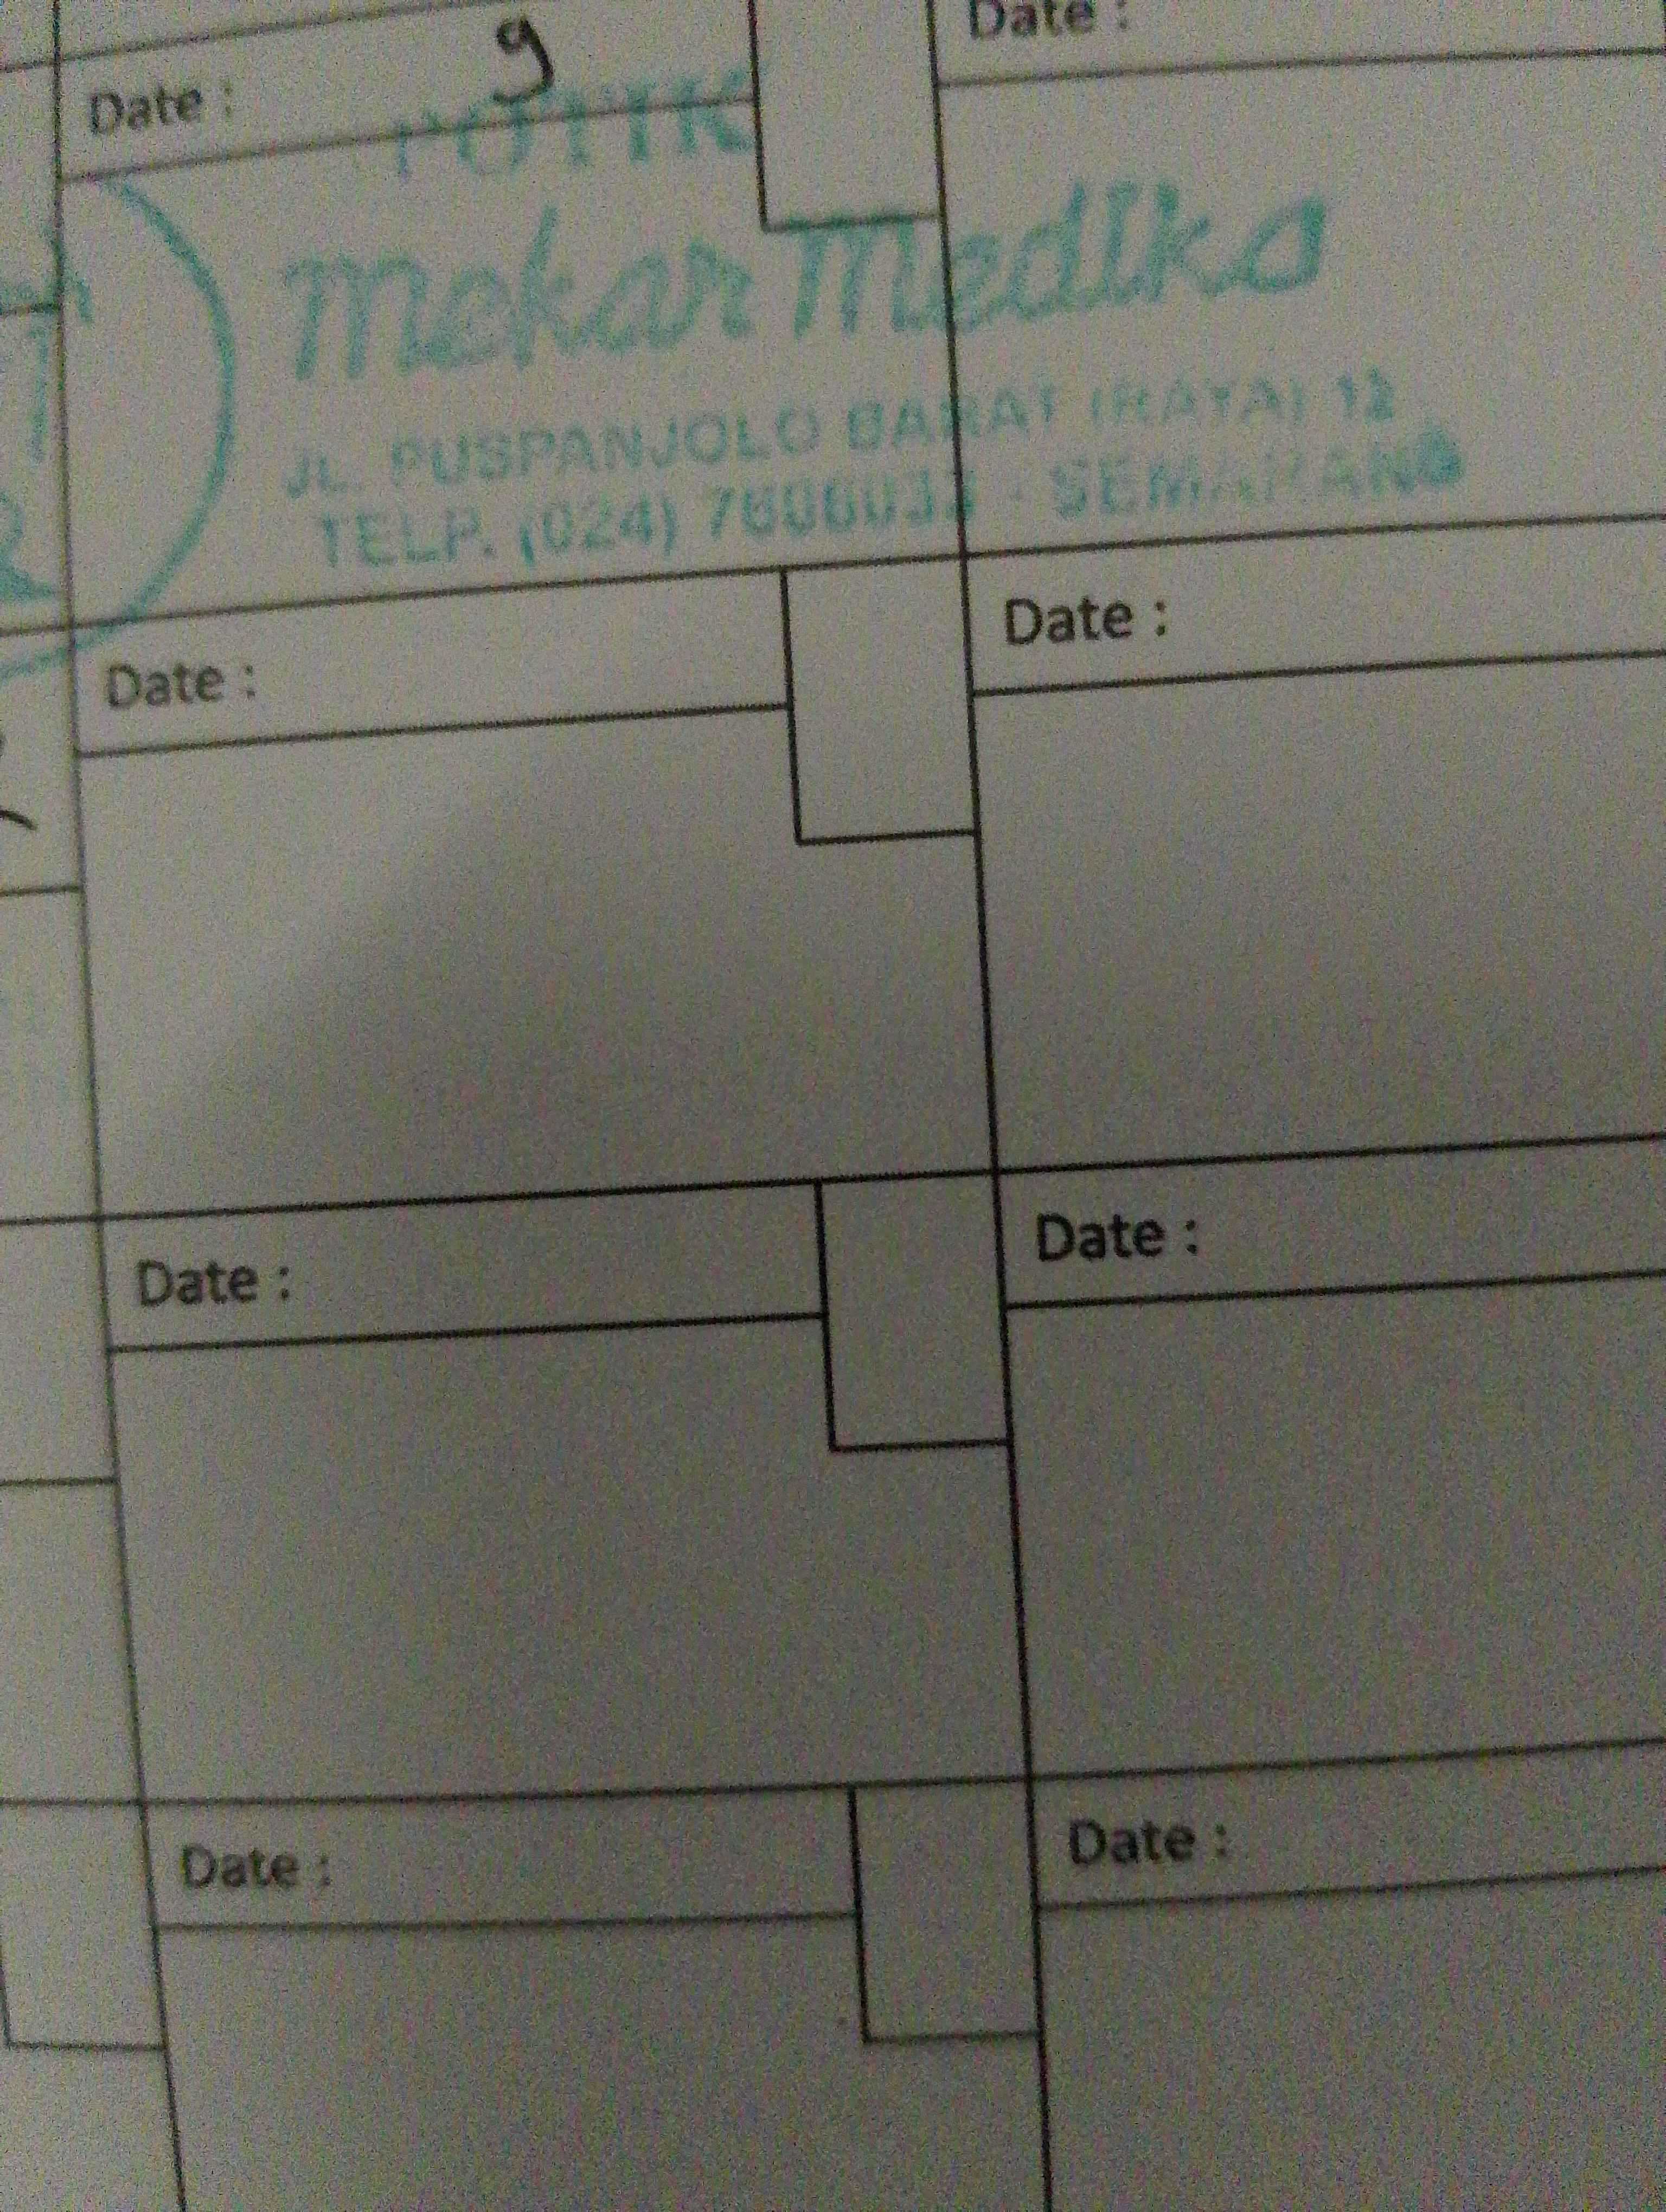 Date :
Date :
9
Mekar Medika
JL. PUSPANJOLO BARAT (RAYA) 12
TELP. (024) SEMARANG
Date :
Date :
Date :
Date :
Date :
Date :